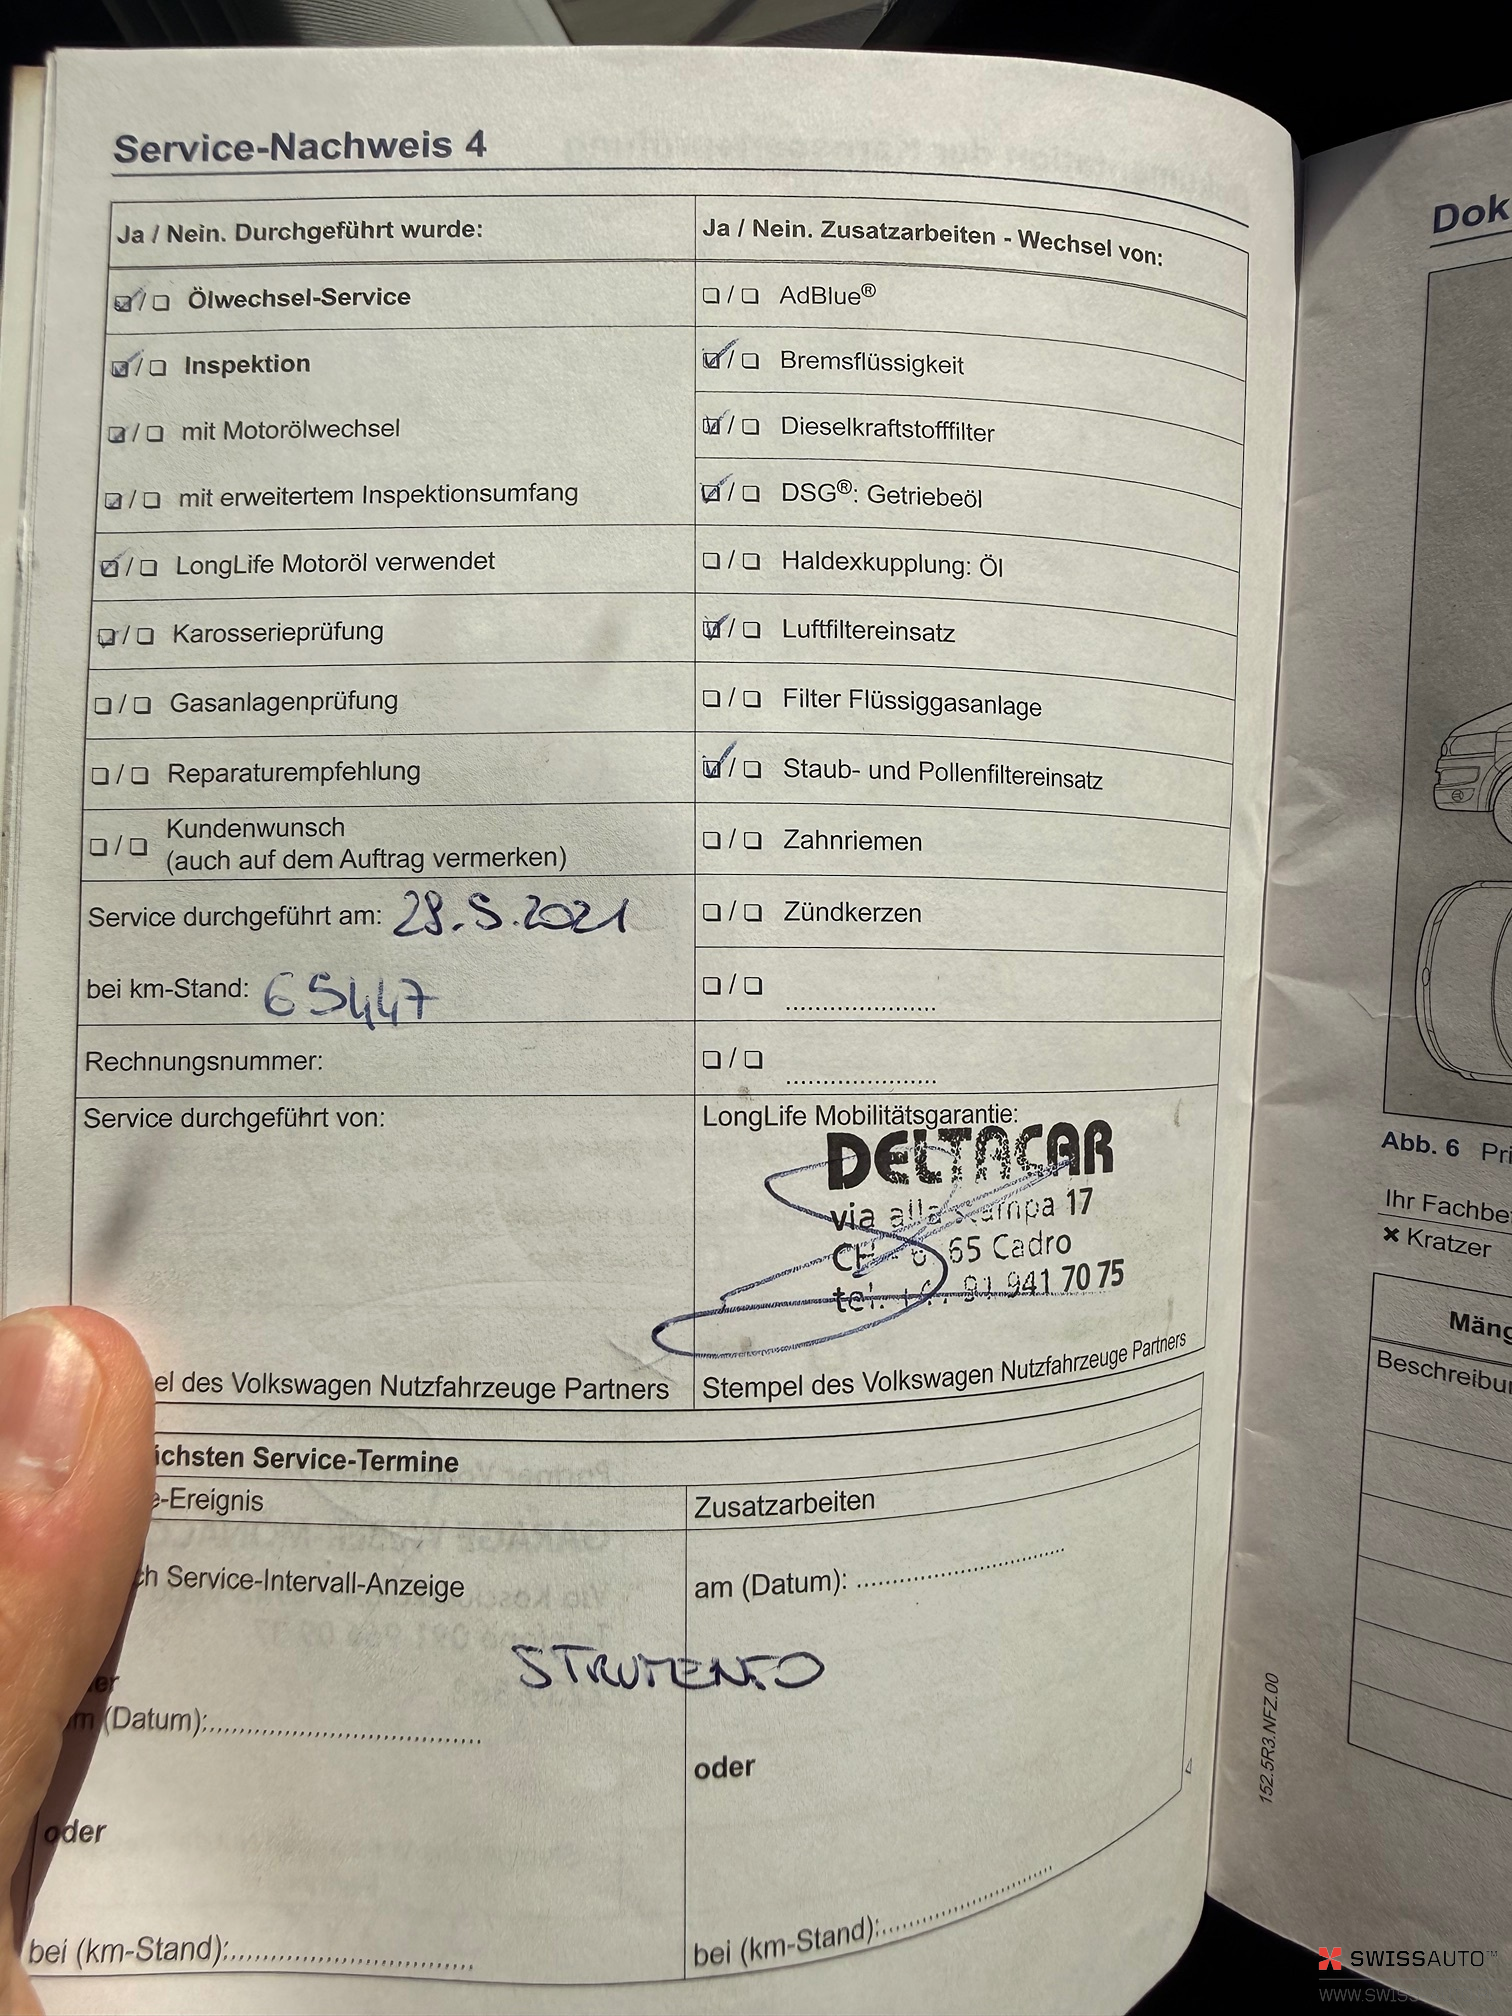 Service-Nachweis 4
Ja / Nein. Durchgeführt wurde:
Ölwechsel-Service
Inspektion
mit Motorölwechsel
mit erweitertem Inspektionsumfang
LongLife Motoröl verwendet
Karosserieprüfung
Gasanlagenprüfung
Reparaturempfehlung
Kundenwunsch
(auch auf dem Auftrag vermerken)
Service durchgeführt am: 28.5.2021
bei km-Stand: 65447
Rechnungsnummer:
Service durchgeführt von:
el des Volkswagen Nutzfahrzeuge Partners
Ja / Nein. Zusatzarbeiten - Wechsel von:
AdBlue®
Bremsflüssigkeit
Dieselkraftstofffilter
DSG®: Getriebeöl
Haldexkupplung: Öl
Luftfiltereinsatz
Filter Flüssiggasanlage
Staub- und Pollenfiltereinsatz
Zahnriemen
Zündkerzen
LongLife Mobilitätsgarantie:
DELTACAR
via alla stampa 17
65 Cadro
tel. 91 941 70 75
Stempel des Volkswagen Nutzfahrzeuge Partners
ichsten Service-Termine
e-Ereignis
ch Service-Intervall-Anzeige
STRUMENTO
er
m (Datum):
oder
bei (km-Stand):
Zusatzarbeiten
am (Datum):
oder
bei (km-Stand):
152.5R3.NFZ.00
Dok
Abb. 6 Pri
Ihr Fachbe
✖ Kratzer
Mäng
Beschreibu
SWISSAUTO™
WWW.SWISS